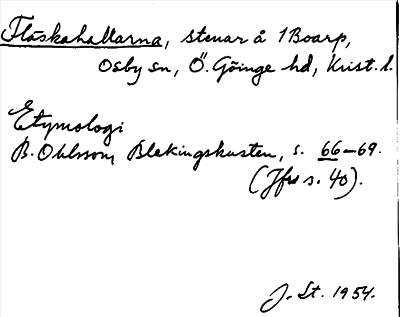 Fläskahallarna, stenar å 1 Boarp,
Osby sn, Ö. Göinge hd, Krist. l.
Etymologi
B. Ohlsson, Blekingskusten, s. 66–69.
(Jfr s. 40).
J. St. 1954.